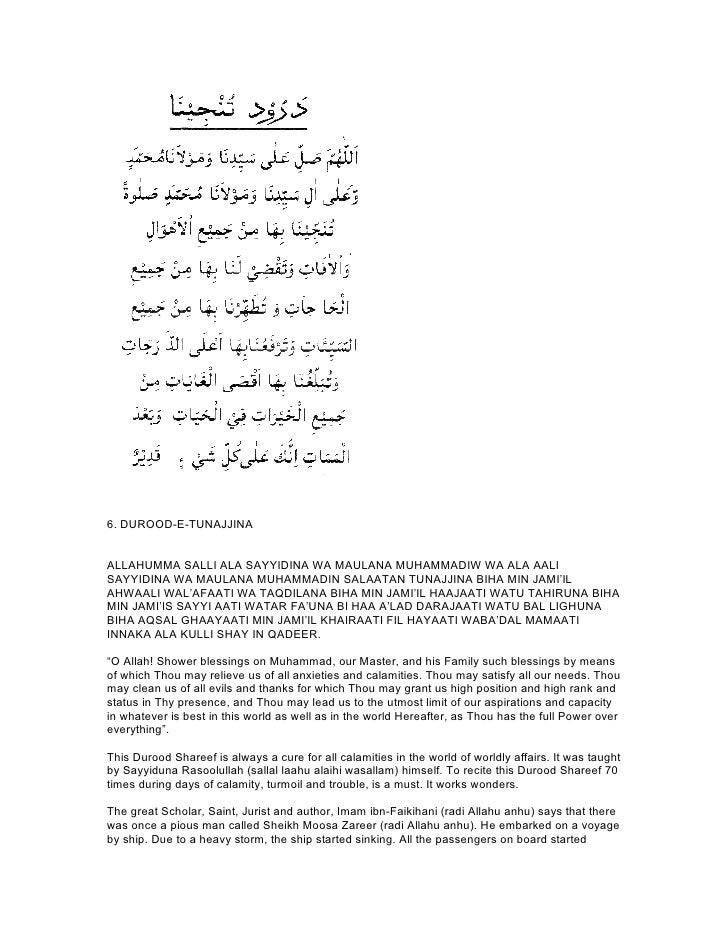 دَرُوْدِ تُنْجِيْنَا
اَللّٰهُمَّ صَلِّ عَلٰى سَيِّدِنَا وَمَوْلَانَامُحَمَّدٍ
وَّعَلٰى اٰلِ سَيِّدِنَا وَمَوْلَانَا مُحَمَّدٍ صَلٰوةً
تُنَجِّيْنَا بِهَا مِنْ جَمِيْعِ الْاَهْوَالِ
وَالْاٰفَاتِ وَتَقْضِيْ لَنَا بِهَا مِنْ جَمِيْعِ
الْحَاجَاتِ وَ تُطَهِّرُنَا بِهَا مِنْ جَمِيْعِ
السَّيِّئَاتِ وَتَرْفَعُنَابِهَا اَعْلَى الدَّرَجَاتِ
وَتُبَلِّغُنَا بِهَا اَقْصَى الْغَايَاتِ مِنْ
جَمِيْعِ الْخَيْرَاتِ فِيْ الْحَيَاتِ وَبَعْدَ
الْمَمَاتِ اِنَّكَ عَلٰى كُلِّ شَيْءٍ قَدِيْرٌ
6. DUROOD-E-TUNAJJINA
ALLAHUMMA SALLI ALA SAYYIDINA WA MAULANA MUHAMMADIW WA ALA AALI
SAYYIDINA WA MAULANA MUHAMMADIN SALAATAN TUNAJJINA BIHA MIN JAMI'IL
AHWAALI WAL'AFAATI WA TAQDILANA BIHA MIN JAMI'IL HAAJAATI WATU TAHIRUNA BIHA
MIN JAMI'IS SAYYI AATI WATAR FA'UNA BI HAA A'LAD DARAJAATI WATU BAL LIGHUNA
BIHA AQSAL GHAAYAATI MIN JAMI'IL KHAIRAATI FIL HAYAATI WABA'DAL MAMAATI
INNAKA ALA KULLI SHAY IN QADEER.
“O Allah! Shower blessings on Muhammad, our Master, and his Family such blessings by means
of which Thou may relieve us of all anxieties and calamities. Thou may satisfy all our needs. Thou
may clean us of all evils and thanks for which Thou may grant us high position and high rank and
status in Thy presence, and Thou may lead us to the utmost limit of our aspirations and capacity
in whatever is best in this world as well as in the world Hereafter, as Thou has the full Power over
everything”.
This Durood Shareef is always a cure for all calamities in the world of worldly affairs. It was taught
by Sayyiduna Rasoolullah (sallal laahu alaihi wasallam) himself. To recite this Durood Shareef 70
times during days of calamity, turmoil and trouble, is a must. It works wonders.
The great Scholar, Saint, Jurist and author, Imam ibn-Faikihani (radi Allahu anhu) says that there
was once a pious man called Sheikh Moosa Zareer (radi Allahu anhu). He embarked on a voyage
by ship. Due to a heavy storm, the ship started sinking. All the passengers on board started